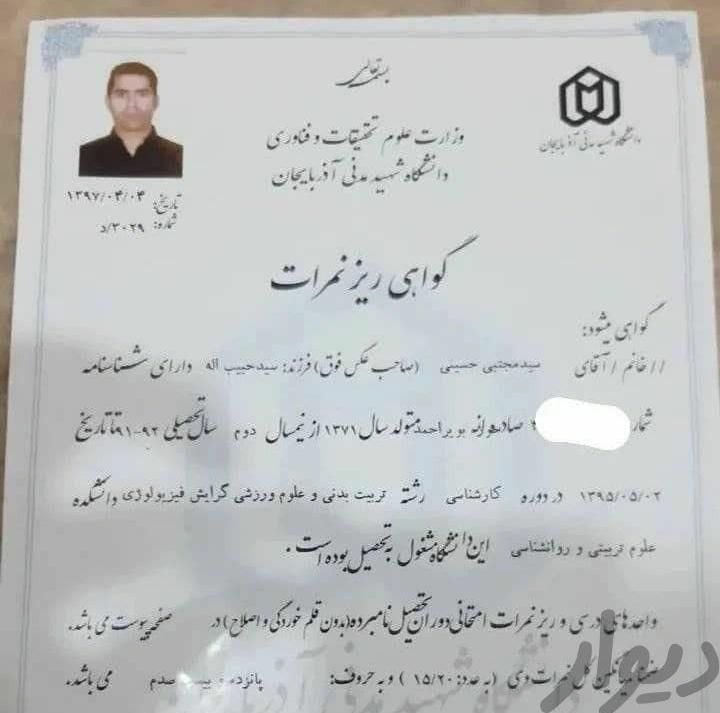 بسمه تعالی
وزارت علوم تحقیقات و فناوری
دانشگاه شهید مدنی آذربایجان
دانشگاه شهید مدنی آذربایجان
تاریخ: ۱۳۹۷/۰۴/۰۴
شماره: ۳۰۲۹/د
گواهی ریز نمرات
گواهی میشود:
//خانم / آقای سیدمجتبی حسینی (صاحب عکس فوق) فرزند: سیدحبیب اله دارای شناسنامه
شمار صادره از بویراحمد متولد سال ۱۳۷۱ از نیمسال دوم سال تحصیلی ۹۲-۹۱ تا تاریخ
۱۳۹۵/۰۵/۰۲ در دوره کارشناسی رشته تربیت بدنی و علوم ورزشی گرایش فیزیولوژی دانشکده
علوم تربیتی و روانشناسی این دانشگاه مشغول به تحصیل بوده است.
واحدهای درسی و ریز نمرات امتحانی دوران تحصیل نامبرده (بدون قلم خوردگی و اصلاح) در صفحه پیوست می باشد.
ضمناً میانگین کل نمرات وی (به عدد: ۱۵/۲۰ ) و به حروف: پانزده و بیست صدم می باشد.
دیوار
دانشگاه شهید مدنی آذربایجان